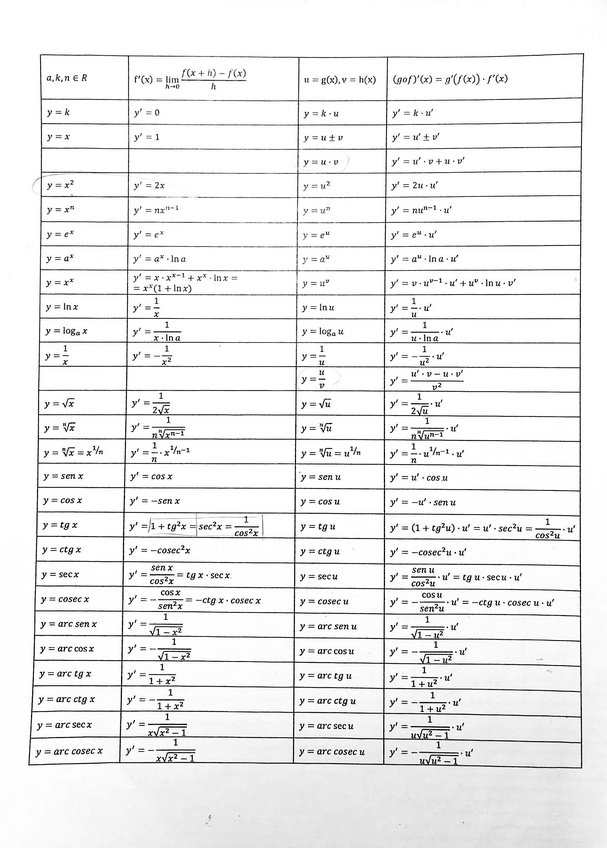 a, k, n ∈ R f'(x) = lim h→0 (f(x + h) − f(x))/h u = g(x), v = h(x) (gof)'(x) = g'(f(x)) · f'(x)
y = k y' = 0 y = k · u y' = k · u'
y = x y' = 1 y = u ± v y' = u' ± v'
y = u · v y' = u' · v + u · v'
y = x² y' = 2x y = u² y' = 2u · u'
y = xⁿ y' = nxⁿ⁻¹ y = uⁿ y' = nuⁿ⁻¹ · u'
y = eˣ y' = eˣ y = eᵘ y' = eᵘ · u'
y = aˣ y' = aˣ · ln a y = aᵘ y' = aᵘ · ln a · u'
y = xˣ y' = x · xˣ⁻¹ + xˣ · ln x = = xˣ(1 + ln x) y = uᵛ y' = v · uᵛ⁻¹ · u' + uᵛ · ln u · v'
y = ln x y' = 1/x y = ln u y' = 1/u · u'
y = logₐ x y' = 1/(x · ln a) y = logₐ u y' = 1/(u · ln a) · u'
y = 1/x y' = − 1/x² y = 1/u y' = − 1/u² · u'
y = u/v y' = (u' · v − u · v')/v²
y = √x y' = 1/(2√x) y = √u y' = 1/(2√u) · u'
y = ⁿ√x y' = 1/(n ⁿ√(xⁿ⁻¹)) y = ⁿ√u y' = 1/(n ⁿ√(uⁿ⁻¹)) · u'
y = ⁿ√x = x^(1/n) y' = 1/n · x^(1/n−1) y = ⁿ√u = u^(1/n) y' = 1/n · u^(1/n−1) · u'
y = sen x y' = cos x y = sen u y' = u' · cos u
y = cos x y' = −sen x y = cos u y' = −u' · sen u
y = tg x y' = 1 + tg²x = sec²x = 1/cos²x y = tg u y' = (1 + tg²u) · u' = u' · sec²u = 1/cos²u · u'
y = ctg x y' = −cosec²x y = ctg u y' = −cosec²u · u'
y = sec x y' = sen x/cos²x = tg x · sec x y = sec u y' = sen u/cos²u · u' = tg u · sec u · u'
y = cosec x y' = − cos x/sen²x = −ctg x · cosec x y = cosec u y' = − cos u/sen²u · u' = −ctg u · cosec u · u'
y = arc sen x y' = 1/√(1 − x²) y = arc sen u y' = 1/√(1 − u²) · u'
y = arc cos x y' = − 1/√(1 − x²) y = arc cos u y' = − 1/√(1 − u²) · u'
y = arc tg x y' = 1/(1 + x²) y = arc tg u y' = 1/(1 + u²) · u'
y = arc ctg x y' = − 1/(1 + x²) y = arc ctg u y' = − 1/(1 + u²) · u'
y = arc sec x y' = 1/(x√(x² − 1)) y = arc sec u y' = 1/(u√(u² − 1)) · u'
y = arc cosec x y' = − 1/(x√(x² − 1)) y = arc cosec u y' = − 1/(u√(u² − 1)) · u'